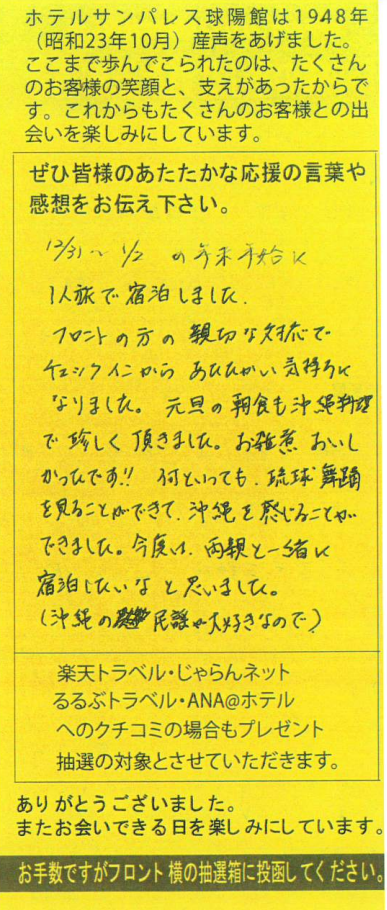 ホテルサンパレス球陽館は1948年
（昭和23年10月）産声をあげました。
ここまで歩んでこられたのは、たくさん
のお客様の笑顔と、支えがあったからで
す。これからもたくさんのお客様との出
会いを楽しみにしています。
ぜひ皆様のあたたかな応援の言葉や
感想をお伝え下さい。
12/31〜1/2 の年末年始に
1人旅で宿泊しました.
フロントの方の親切な対応で
チェックインからあたたかい気持ちに
なりました。元旦の朝食も沖縄料理
で珍しく頂きました。お雑煮おいし
かったです!! 何といっても、琉球舞踊
を見ることができて、沖縄を感じることが
できました。今度は、両親と一緒に
宿泊したいなと思いました。
(沖縄の 民謡が大好きなので)
楽天トラベル・じゃらんネット
るるぶトラベル・ANA@ホテル
へのクチコミの場合もプレゼント
抽選の対象とさせていただきます。
ありがとうございました。
またお会いできる日を楽しみにしています。
お手数ですがフロント横の抽選箱に投函してください。